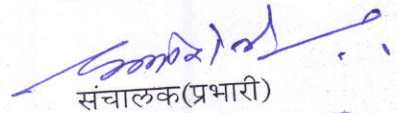 संचालक(प्रभारी)